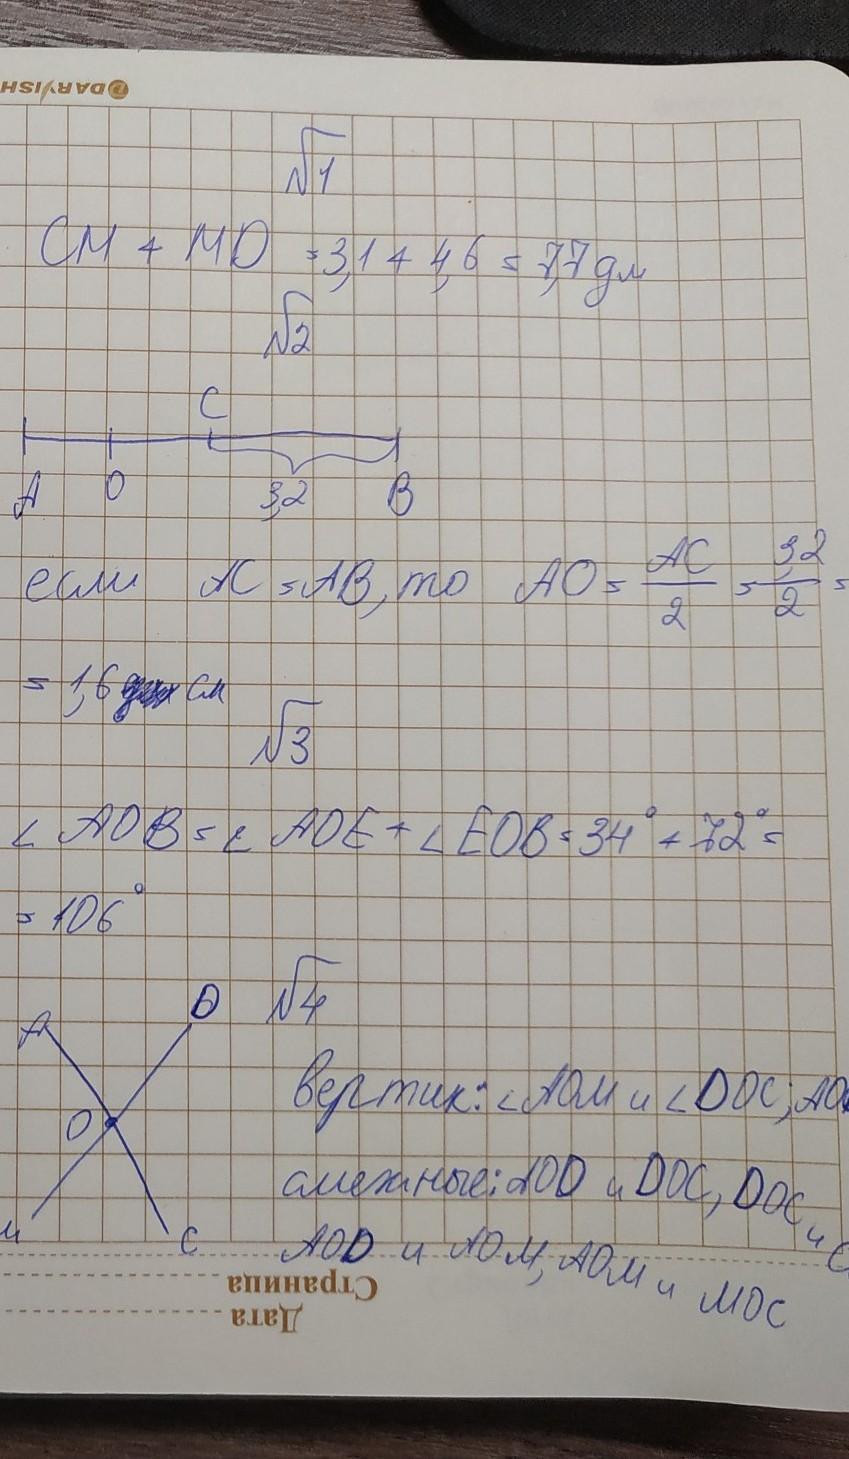 DARVISH
√1
CM + MD = 3,1 + 4,6 = 7,7 дм
√2
C
A O 3,2 B
если AC = AB, то AO = AC/2 = 3,2/2 =
= 1,6 см
√3
∠ AOB = ∠ AOE + ∠EOB = 34° + 72° =
= 106°
√4
A D
O
M C
вертик: ∠AOM и ∠DOC;
смежные: AOD и DOC, DOC и
AOD и AOM, AOM и MOC
Страница
Дата